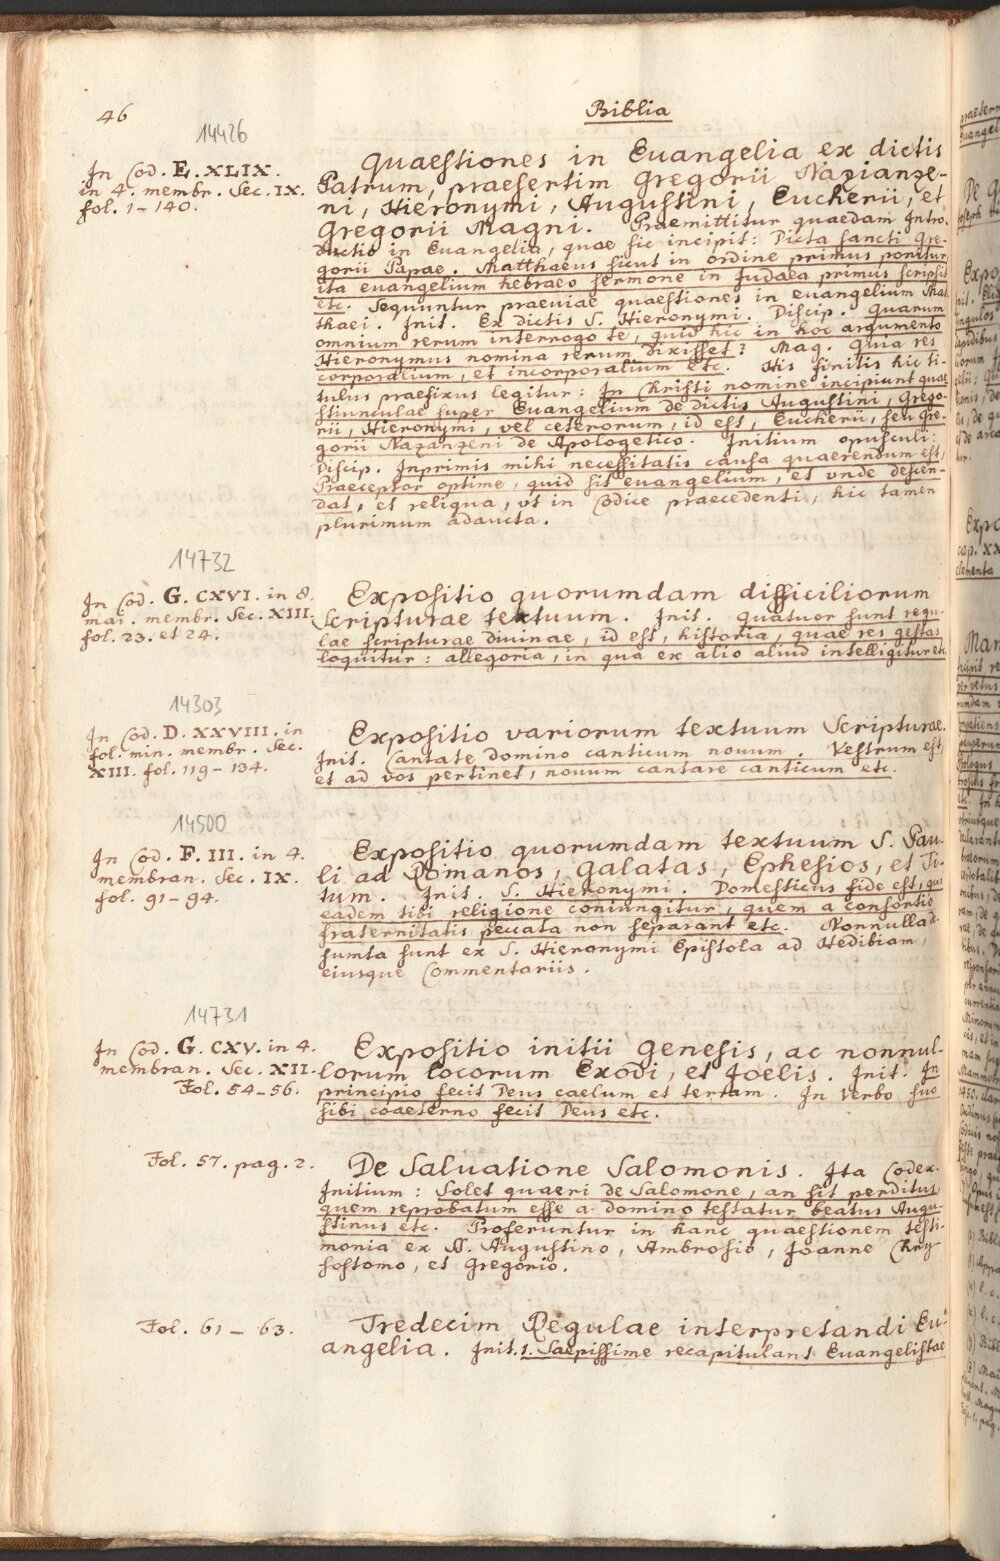 46
Biblia
14426
In Cod. E. XLIX.
in 4. membr. Sec. IX.
fol. 1-140.
Quaestiones in Euangelia ex dictis
Patrum, praesertim Gregorii Nazianze-
ni, Hieronymi, Augustini, Eucherii, et
Gregorii Magni. Praemittitur quaedam Intro-
ductio in Euangelia, quae sic incipit: Dicta sancti Gre-
gorii Papae. Matthaeus sicut in ordine primus ponitur
ita euangelium hebraeo sermone in Judaea primus scripsit
etc. Sequuntur praeuiae quaestiones in euangelium Mat-
thaei. Init. Ex dictis S. Hieronymi. Discip. Quarum
omnium rerum interrogo te, quid hic in hoc argumento
Hieronymus nomina rerum dixisset? Mag. Quia res
corporalium, et incorporalium etc. His finitis hic ti-
tulus praefixus legitur: In Christi nomine incipiunt quae
stiunculae super Euangelium de dictis Augustini, Grego-
rii, Hieronymi, vel ceterorum, id est, Eucherii, seu Gre-
gorii Nazanzeni de Apologetico. Initium opusculi:
Discip. Inprimis mihi necessitatis causa quaerendum est,
Praeceptor optime, quid sit euangelium, et vnde descen-
dat, et reliqua, vt in Codice praecedenti, hic tamen
plurimum adaucta.
14732
In Cod. G. CXVI. in 8.
mai. membr. Sec. XIII.
fol. 23. et 24.
Expositio quorumdam difficiliorum
Scripturae textuum. Init. Quatuor sunt regu-
lae scripturae diuinae, id est, historia, quae res gestas
loquitur: allegoria, in qua ex alio aliud intelligitur etc
14303
In Cod. D. XXVIII. in
fol. min. membr. Sec.
XIII. fol. 119-134.
Expositio variorum textuum Scripturae.
Init. Cantate domino canticum nouum. Vestrum est,
et ad vos pertinet, nouum cantare canticum etc.
14500
In Cod. F. III. in 4.
membran. Sec. IX.
fol. 91-94.
Expositio quorumdam textuum S. Pau-
li ad Romanos, Galatas, Ephesios, et Ti-
tum. Init. S. Hieronymi. Domesticus fide est, qui
eadem tibi religione coniungitur, quem a consortio
fraternitatis peccata non separant etc. Nonnulla de-
sumta sunt ex S. Hieronymi Epistola ad Hedibiam,
eiusque Commentariis.
14731
In Cod. G. CXV. in 4.
membran. Sec. XII.
Fol. 54-56.
Expositio initii Genesis, ac nonnul-
lorum locorum Exodi, et Joelis. Init. In
principio fecit Deus caelum et terram. In Verbo suo
sibi coaeterno fecit Deus etc.
Fol. 57. pag. 2.
De Saluatione Salomonis. Ita Codex.
Initium: Solet quaeri de Salomone, an sit perditus,
quem reprobatum esse a domino testatur beatus Augu-
stinus etc. Proferuntur in hanc quaestionem testi-
monia ex SS. Augustino, Ambrosio, Joanne Chry-
sostomo, et Gregorio.
Fol. 61 - 63.
Tredecim Regulae interpretandi Eu-
angelia. Init. 1. Saepissime recapitulant Euangelistae